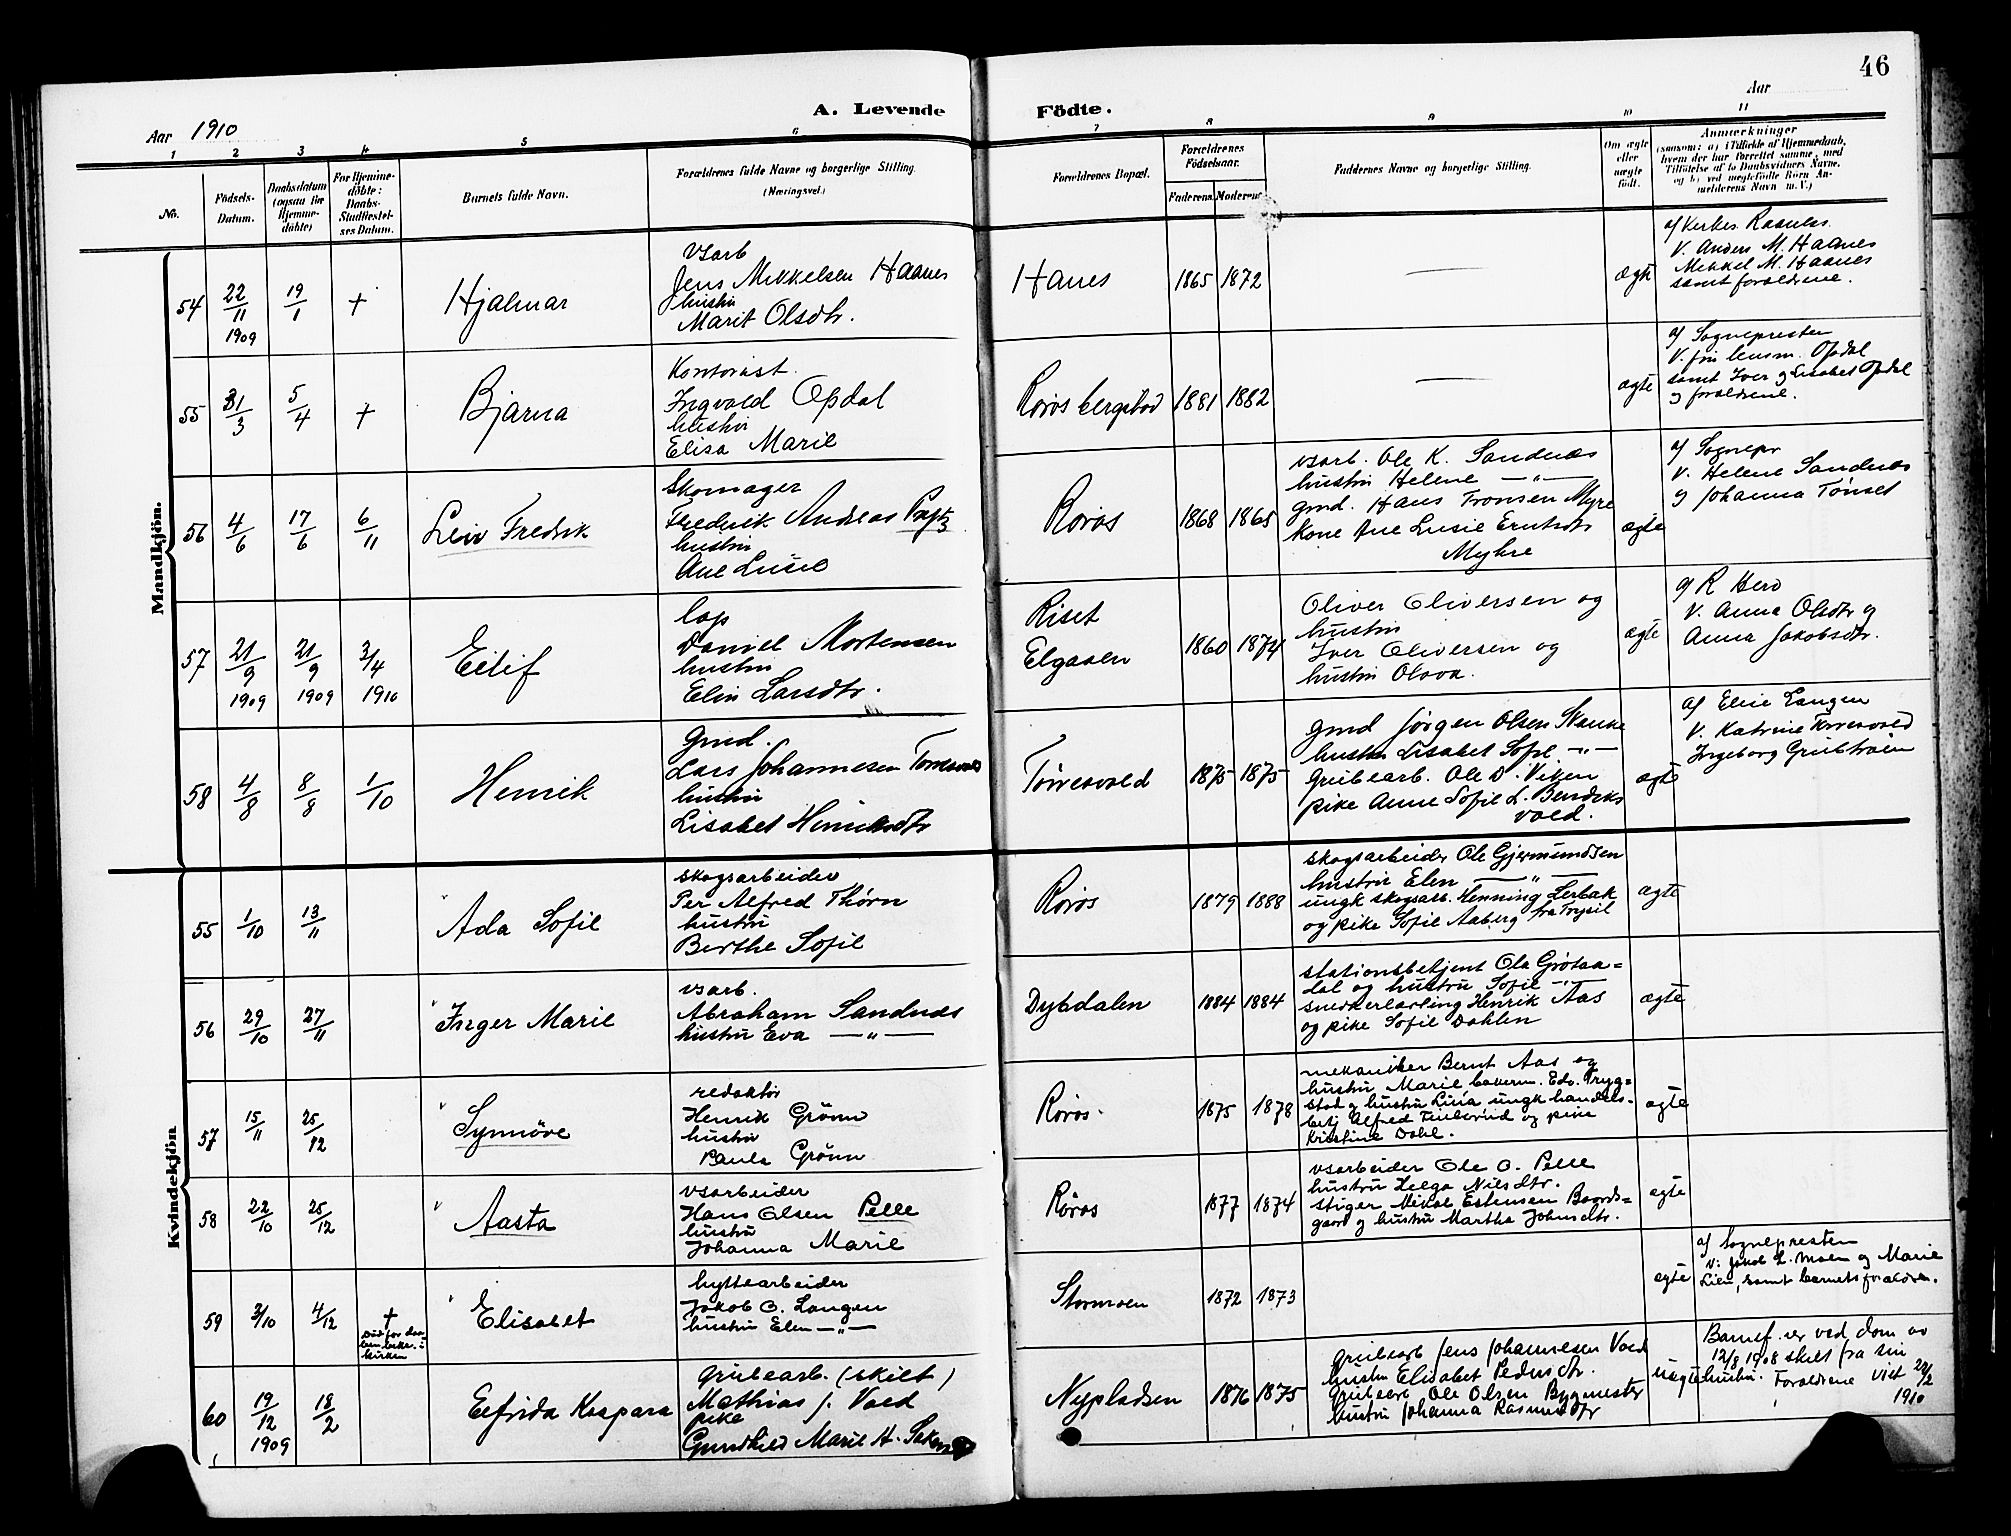 46
Aar 1910
A. Levende Födte.
Aar
1 2 3 4 5 6 7 8 9 10 11
No.
Födsels-
Datum.
Daabsdatum
(ogsaa for
Hjemme-
döbte)
For Hjemme-
döbte:
Daabs-
Stadfæstel-
ses Datum.
Barnets fulde Navn.
Forældrenes fulde Navne og borgerlige Stilling.
(Næringsvei.)
Forældrenes Bopæl.
Forældrenes
Födselsaar.
Faderens. Moderens.
Faddernes Navne og borgerlige Stilling.
Om ægte
eller
uægte
født.
Anmærkninger
(saasom: a) i Tilfælde af Hjemmedaab,
hvem der har forrettet samme, med
Tilföielse af to Daabsvidners Navne,
og b) ved uægtefödte Börn An-
mælderens Navn m. V.)
Mandkjön.
54
22/11
1909
19/1
+
Hjalmar
vsarb
Jens Mikkelsen Haanes
hustru
Marit Olsdtr.
Hanes
1865 1872
ægte
af Kirkes.
V. Anders M. Haanes
Mikkel M. Haanes
samt forældrene.
55
31/3
5/4
+
Bjarna
Kontorist
Ingvald Opdal
hustru
Elisa Marie
Røros bergstad
1881 1882
ægte
af Sognepresten
V. lensm. Opdal
samt Iver og Lisabet Opdal
og forældrene.
56
4/6
17/6
6/11
Leiv Fredrik
Skomager
Frederik Andreas
hustru
Ane Lusie
Røros
1868 1865
vsarb. Ole K. Sandnæs
hustru Helene —"—
gmd. Hans Tronsen Myre
Kone Ane Lusie
Myhre
ægte
af Sognepr
V. Helene Sandnæs
og Johanna Tønset
57
21/9
1909
21/9
1909
3/4
1910
Eilif
lap
Daniel Mortensen
hustru
Elin Larsdtr.
Riset
Elgaaen
1860 1874
Oliver Oliversen og
hustru
Iver Oliversen og
hustru Olava.
ægte
af R Herø
V. Anna Olsdtr og
Anna Jakobsdtr.
58
4/8
8/8
1/10
Henrik
Gmd.
Lars Johannesen
hustru
Lisabet Henriksdtr
Tørresvold
1875 1875
gmd Jørgen Olsen Skanke
hustru Lisabet Sofie —"—
grubearb. Ole D. Viken
pike Anne Sofie L. Bendiks
vold.
ægte
af Elise Langen
V. Katrine Tørresvold
Ingeborg
Kvindekjön
55
1/10
13/11
Ada Sofie
skogsarbeider
Per Alfred Thørn
hustru
Berthe Sofie
Røros
1879 1888
skogsarbeider Ole Gjermundsen
hustru Elen —"—
ungk skogsarb. Henning Lerbak
og pike Sofie Aaberg fra Trysil
ægte
56
29/10
27/11
Inger Marie
vsarb.
Abraham Sandnæs
hustru Eva —"—
Dybdalen
1884 1884
stationsbetjent Ola Grøtaa=
dal og hustru Sofie —"—
snedkerlærling Henrik Aas
og pike Sofie Dahlen
ægte
57
15/11
25/12
Synnöve
redaktør
Henrik Grönn
hustru
Paula Grönn
Røros.
1875 1878
mekaniker Bernt Aas og
hustru Marie Edv. Tryg=
stad og hustru Lina ungk handels-
betj Alfred og pike
Kristine Dahl.
ægte
58
22/10
25/12
Aasta
vsarbeider
Hans Olsen Pelle
hustru
Johanna Marie
Røros
1877 1874
vsarbeider Ole O. Pelle
hustru Helga Nilsdtr.
stiger Mikal Estensen Baards=
gaard og hustru Martha Johnsdtr.
ægte
59
3/10
4/12
+
Elisabet
hyttearbeider
Jakob O. Langen
hustru Elen —"—
Stormoen
1872 1873
ægte
af Sognepresten
V. Jakob L. Moen og Marie
Lien, samt barnets forældre.
60
19/12
1909
18/2
Elfrida Kaspara
grubearb. (skilt)
Mathias J. Vold
pike
Gunhild Marie H.
Nyplassen
1876 1875
grubearb Jens Johannesen Vold
hustru Elisabet Pedersdtr.
grubearb Ole Olsen Bygmester
hustru Johanna Rasmusdtr
uægte
Barnef. er ved dom av
12/8 1908 skilt fra sin
hustru. Forældrene viet 22/2
1910